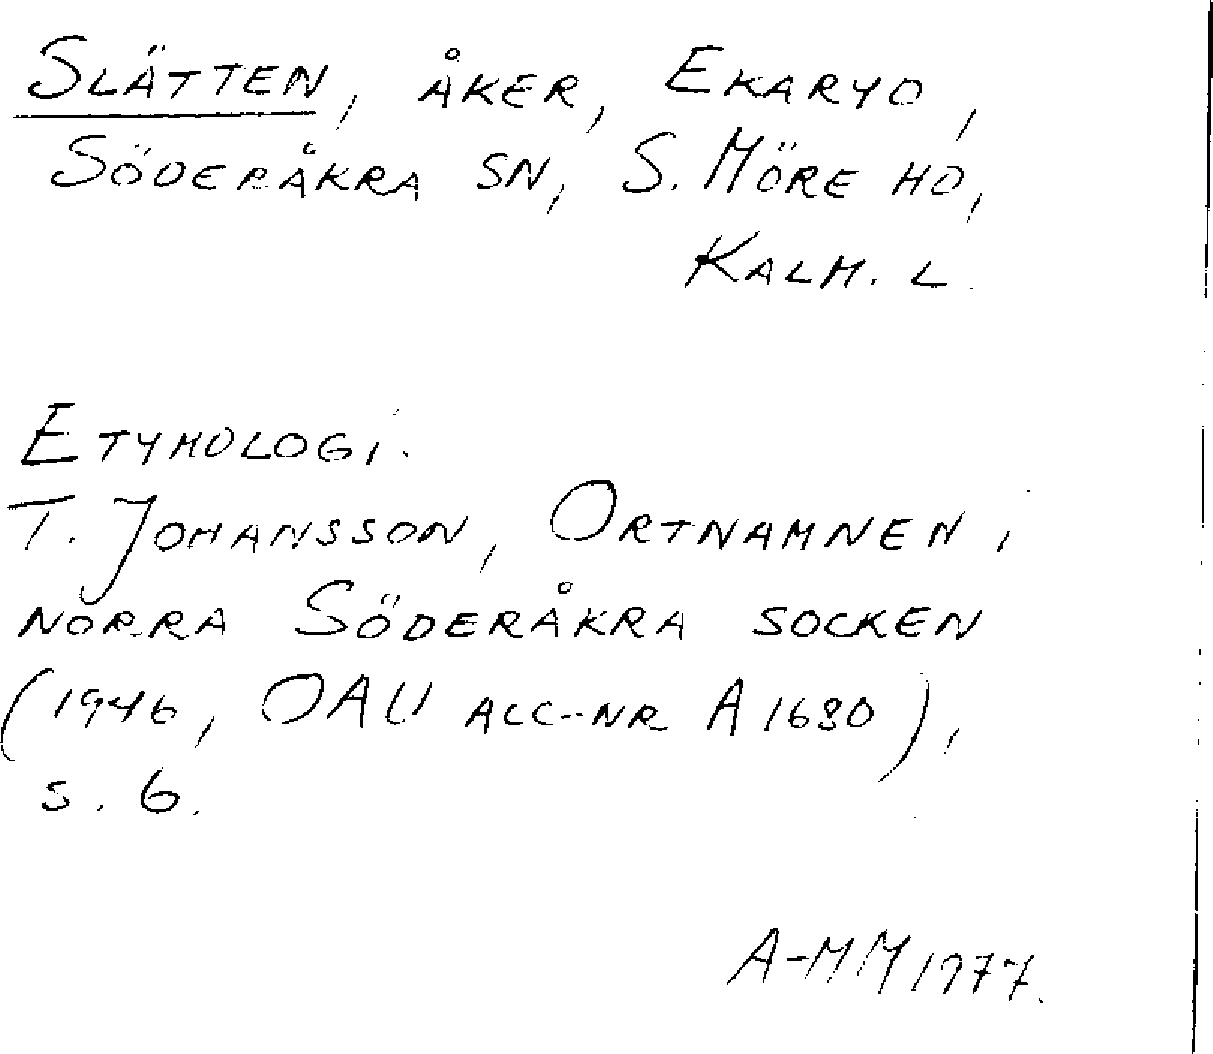 SLÄTTEN, ÅKER, EKARYD,
SÖDERÅKRA SN, S. MÖRE HD,
KALM. L.
ETYMOLOGI.
T. JOHANSSON, ORTNAMNEN i
NORRA SÖDERÅKRA SOCKEN
(1946, OAU ACC-NR A 1680),
s. 6.
A-MM 1977.